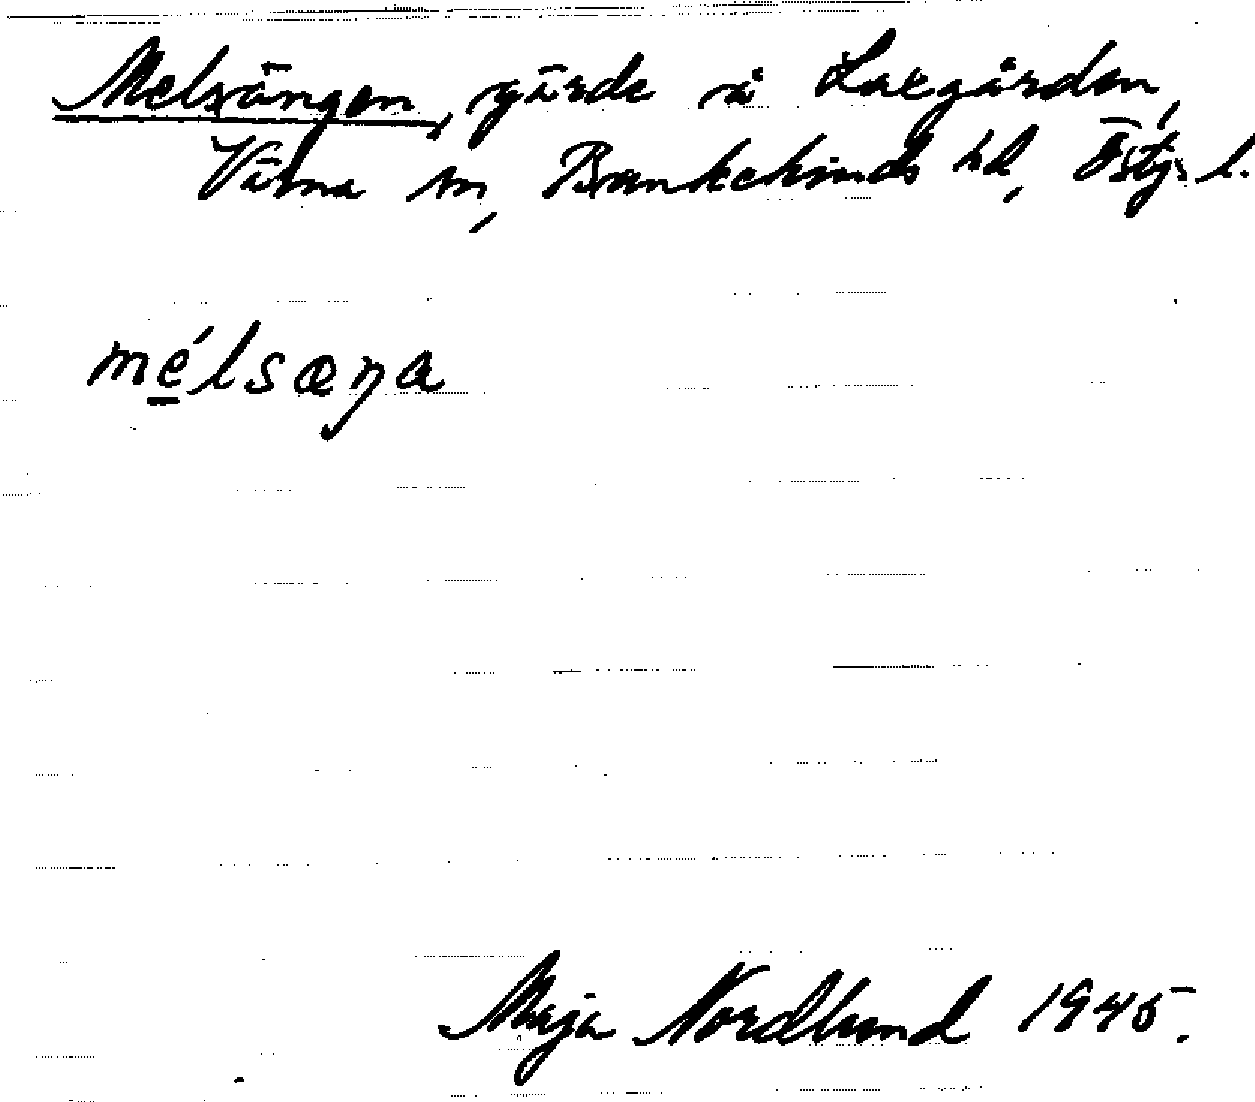 Melsängen, gärde å Laxgården,
Vårna sn, Bankekinds hd, Östg. l.
mélsæŋa
Maja Nordlund 1945.